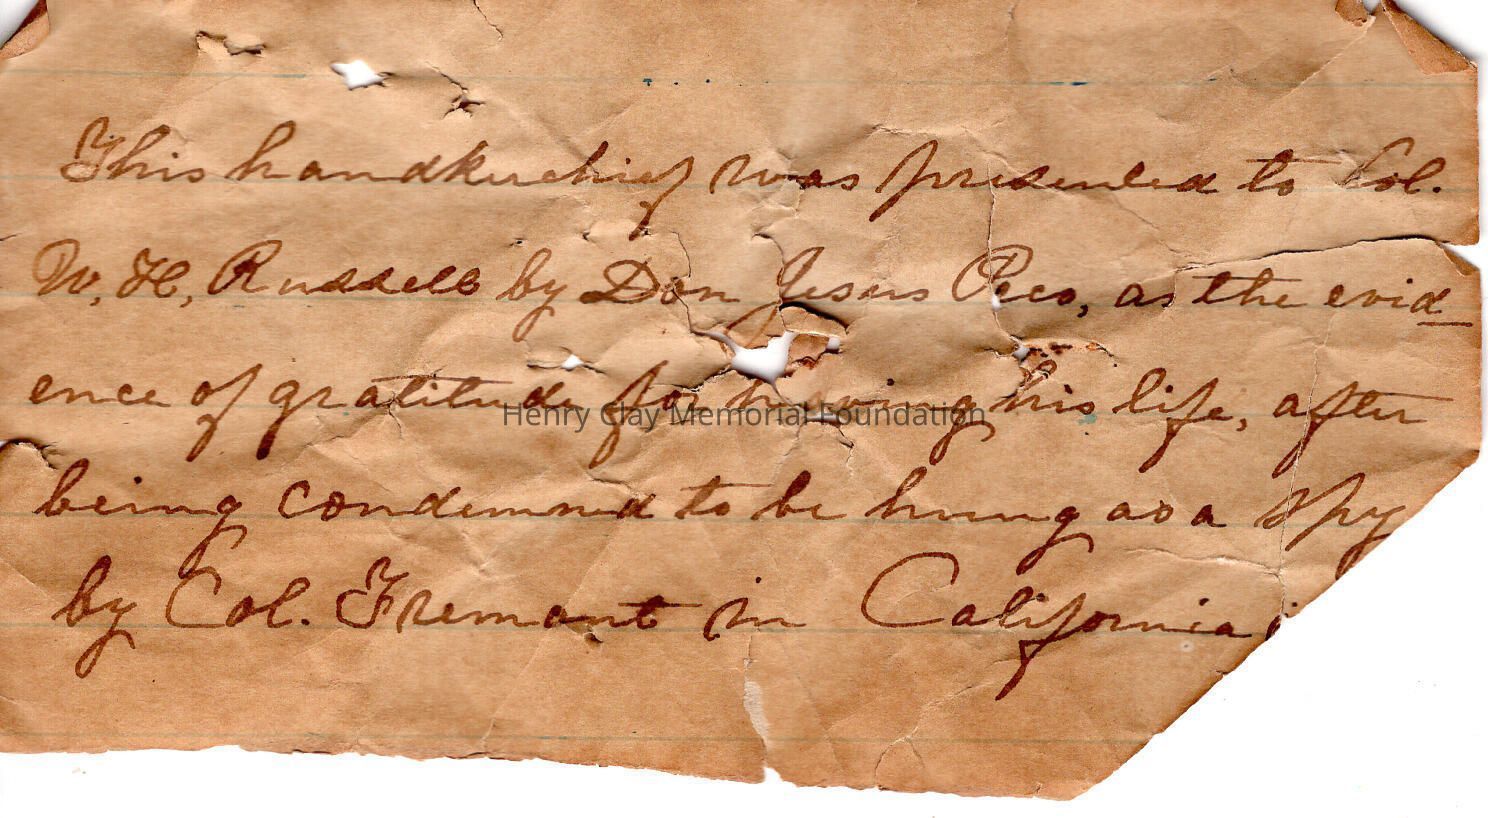 This handkerchief was presented to Col.
W. H. Russell by Don Jesus Peco, as the evid
ence of gratitude for his life, after
being condemned to be hung as a spy
by Col. Fremont in California
Henry Clay Memorial Foundation